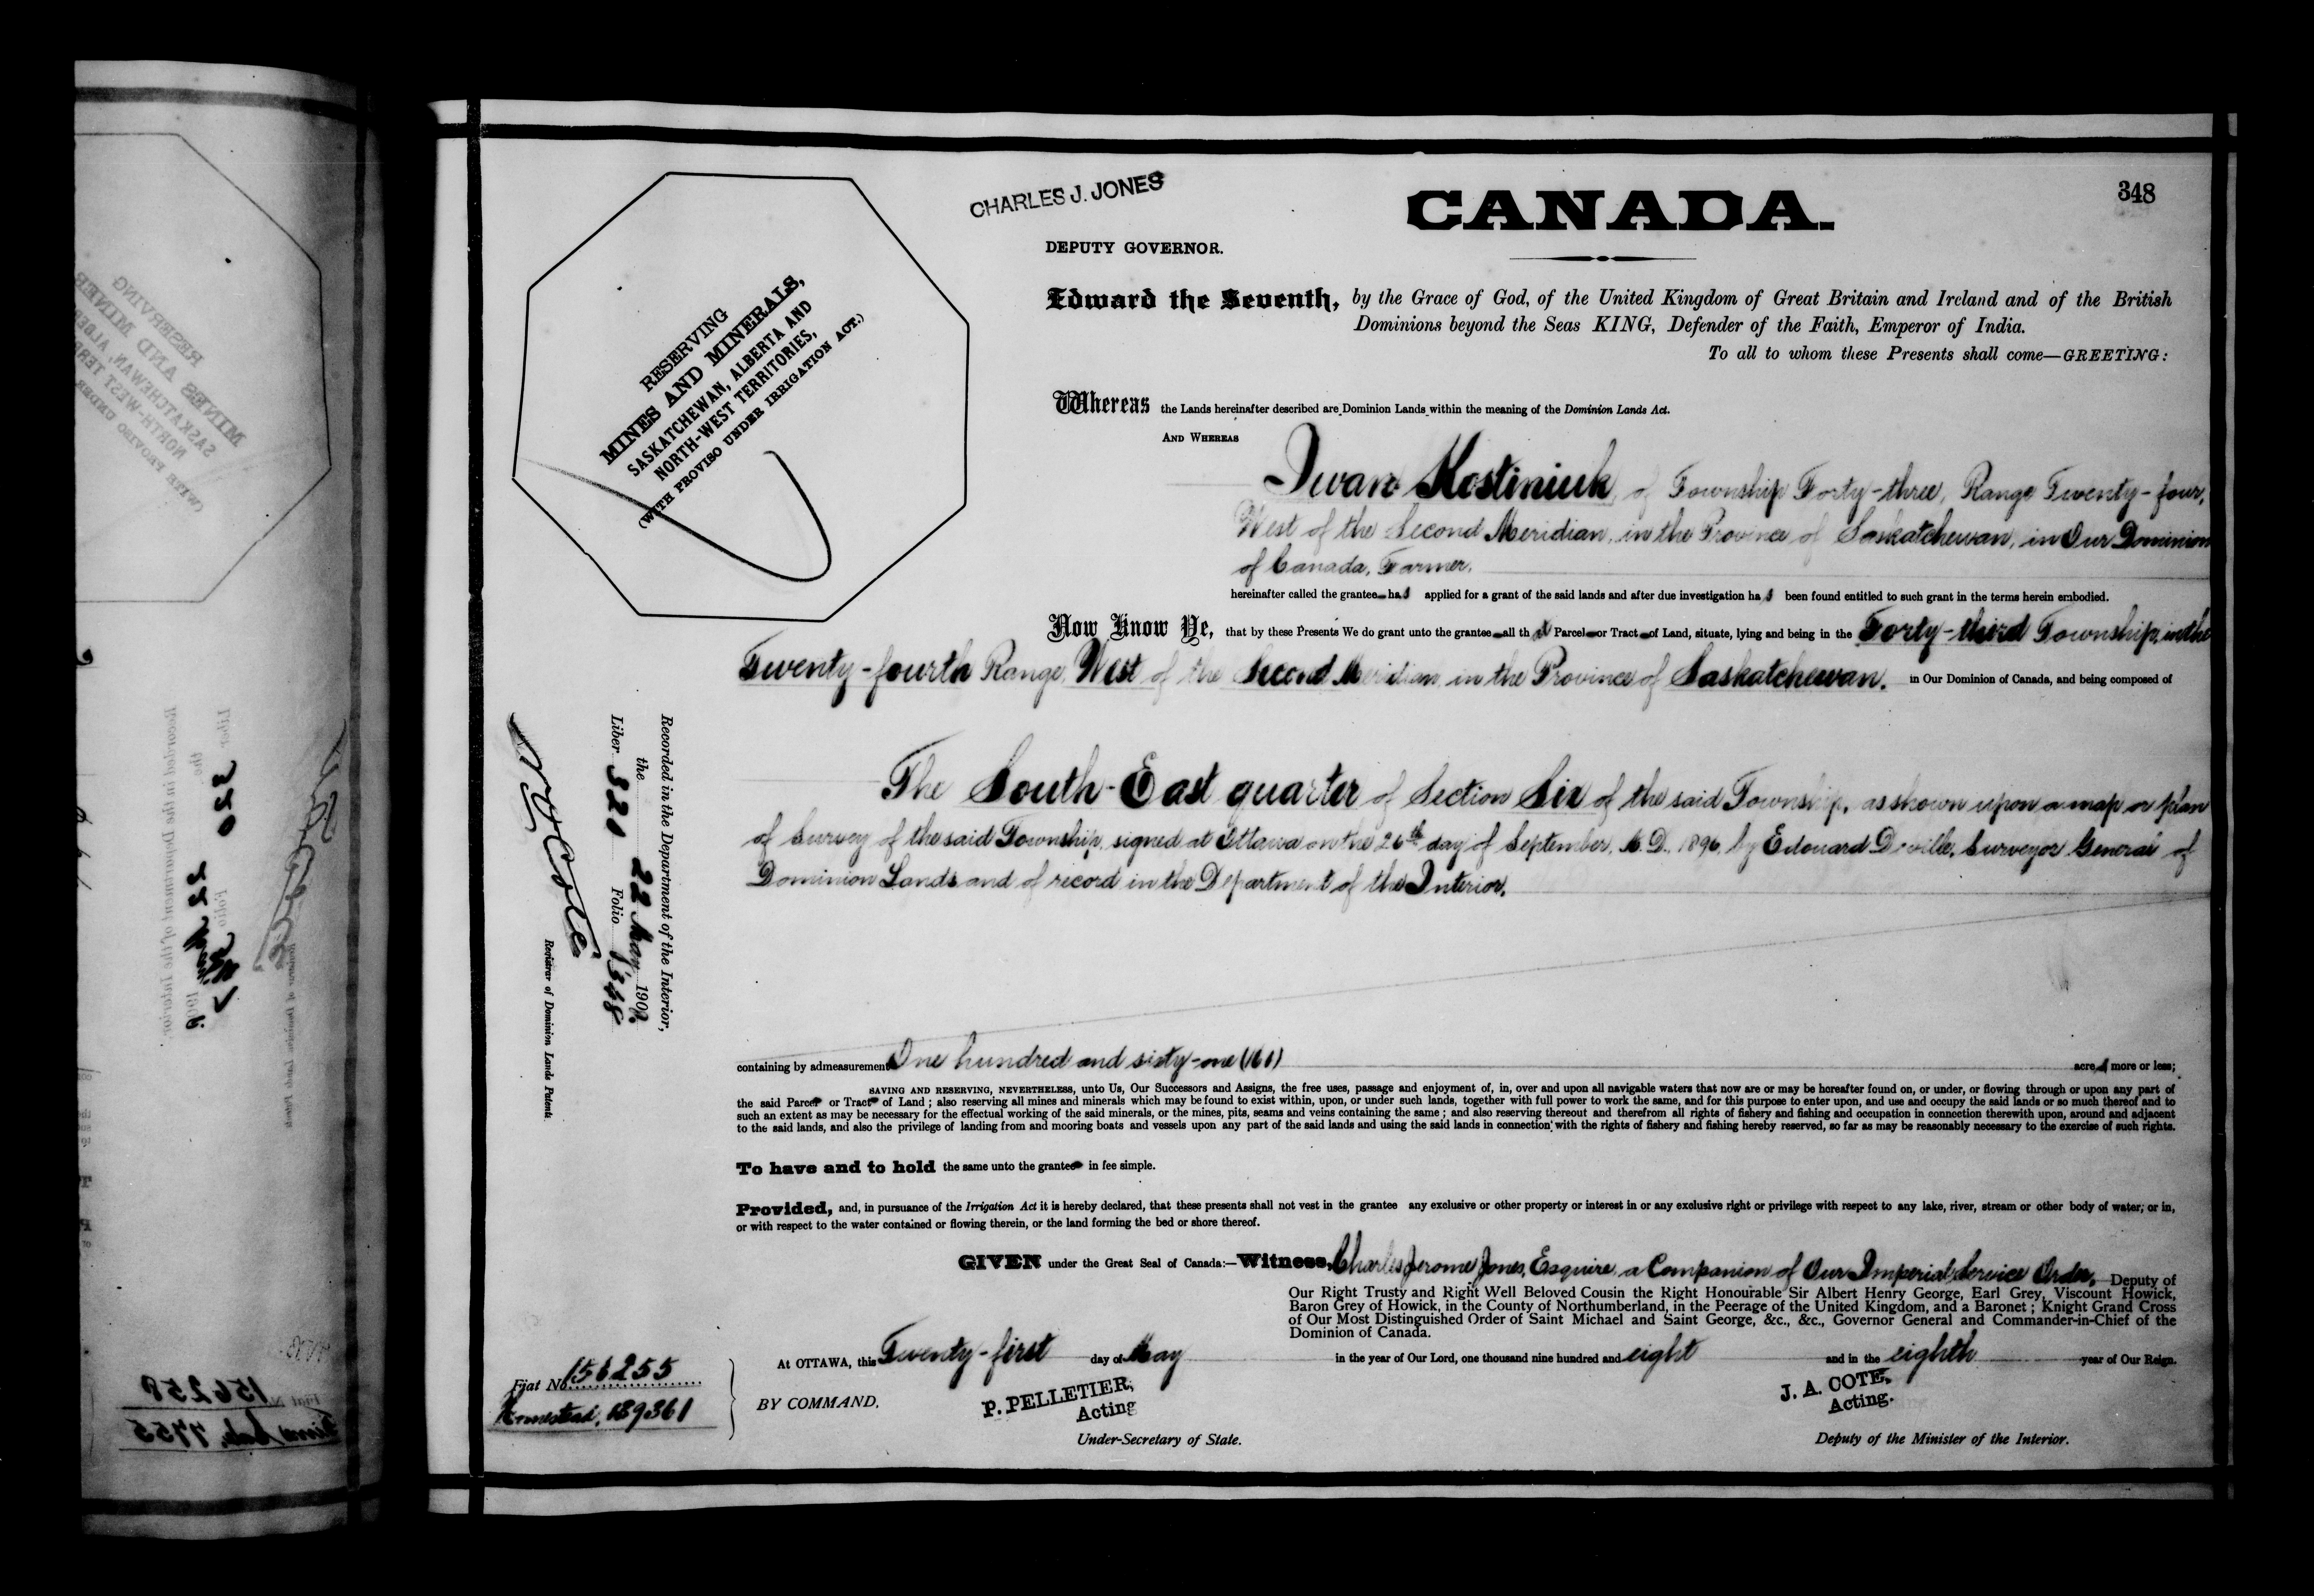 348
CHARLES J. JONES
CANADA.
DEPUTY GOVERNOR.
Edward the Seventh, by the Grace of God, of the United Kingdom of Great Britain and Ireland and of the British
Dominions beyond the Seas KING, Defender of the Faith, Emperor of India.
To all to whom these Presents shall come—GREETING:
RESERVING
MINES AND MINERALS,
SASKATCHEWAN, ALBERTA AND
NORTH-WEST TERRITORIES,
(WITH PROVISO UNDER IRRIGATION ACT.)
Whereas the Lands hereinafter described are Dominion Lands within the meaning of the Dominion Lands Act.
AND WHEREAS
Iwan Kostiniuk, of Township Forty-three, Range Twenty-four,
West of the Second Meridian, in the Province of Saskatchewan, in Our Dominion
of Canada, Farmer,
hereinafter called the grantee has applied for a grant of the said lands and after due investigation has been found entitled to such grant in the terms herein embodied.
Now Know Ye, that by these Presents We do grant unto the grantee all that Parcel or Tract of Land, situate, lying and being in the Forty-third Township, in the
Twenty-fourth Range, West of the Second Meridian, in the Province of Saskatchewan, in Our Dominion of Canada, and being composed of
The South-East quarter of Section Six of the said Township, as shown upon a map or plan
of Survey of the said Township, signed at Ottawa on the 26th day of September, A.D., 1896, by Edouard Deville, Surveyor General of
Dominion Lands and of record in the Department of the Interior.
Recorded in the Department of the Interior,
the 22 May, 1908.
Liber 320 Folio 348
N. O. Coté
Registrar of Dominion Lands Patents.
containing by admeasurement One hundred and sixty-one (161) acres more or less;
SAVING AND RESERVING, NEVERTHELESS, unto Us, Our Successors and Assigns, the free uses, passage and enjoyment of, in, over and upon all navigable waters that now are or may be hereafter found on, or under, or flowing through or upon any part of
the said Parcel or Tract of Land; also reserving all mines and minerals which may be found to exist within, upon, or under such lands, together with full power to work the same, and for this purpose to enter upon, and use and occupy the said lands or so much thereof and to
such an extent as may be necessary for the effectual working of the said minerals, or the mines, pits, seams and veins containing the same; and also reserving thereout and therefrom all rights of fishery and fishing and occupation in connection therewith upon, around and adjacent
to the said lands, and also the privilege of landing from and mooring boats and vessels upon any part of the said lands and using the said lands in connection with the rights of fishery and fishing hereby reserved, so far as may be reasonably necessary to the exercise of such rights.
To have and to hold the same unto the grantee in fee simple.
Provided, and, in pursuance of the Irrigation Act it is hereby declared, that these presents shall not vest in the grantee any exclusive or other property or interest in or any exclusive right or privilege with respect to any lake, river, stream or other body of water, or in,
or with respect to the water contained or flowing therein, or the land forming the bed or shore thereof.
GIVEN under the Great Seal of Canada:—Witness, Charles Jerome Jones, Esquire, a Companion of Our Imperial Service Order, Deputy of
Our Right Trusty and Right Well Beloved Cousin the Right Honourable Sir Albert Henry George, Earl Grey, Viscount Howick,
Baron Grey of Howick, in the County of Northumberland, in the Peerage of the United Kingdom, and a Baronet; Knight Grand Cross
of Our Most Distinguished Order of Saint Michael and Saint George, &c., &c., Governor General and Commander-in-Chief of the
Dominion of Canada.
At OTTAWA, this Twenty-first day of May in the year of Our Lord, one thousand nine hundred and eight and in the eighth year of Our Reign.
Fiat No. 156255
Homestead, 189361
BY COMMAND.
P. PELLETIER,
Acting
Under-Secretary of State.
J. A. COTE,
Acting.
Deputy of the Minister of the Interior.